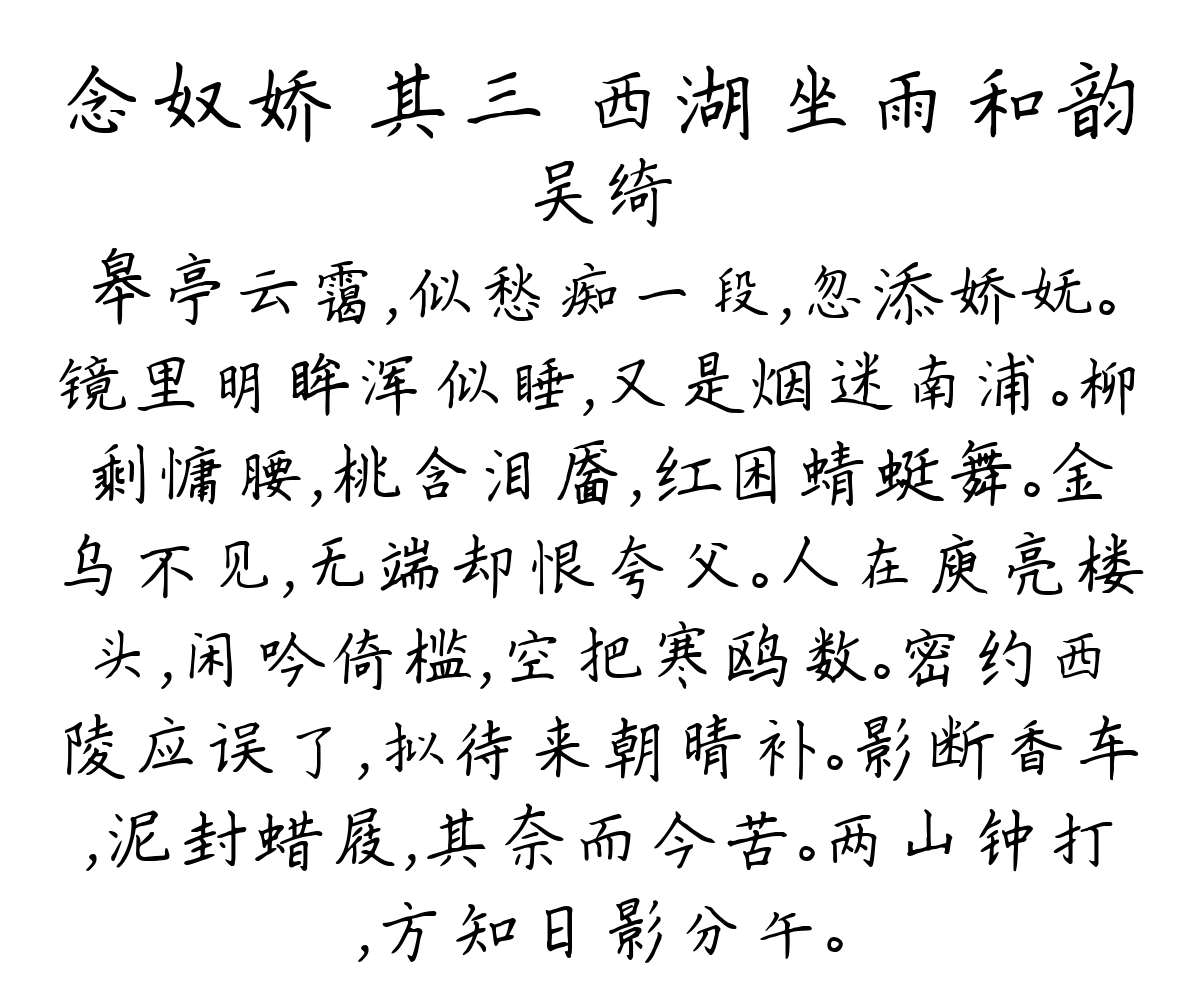 念奴娇 其三 西湖坐雨和韵
吴绮
皋亭云霭,似愁痴一段,忽添娇妩。
镜里明眸浑似睡,又是烟迷南浦。柳
剩慵腰,桃含泪靥,红困蜻蜓舞。金
乌不见,无端却恨夸父。人在庾亮楼
头,闲吟倚槛,空把寒鸥数。密约西
陵应误了,拟待来朝晴补。影断香车
,泥封蜡屐,其奈而今苦。两山钟打
,方知日影分午。